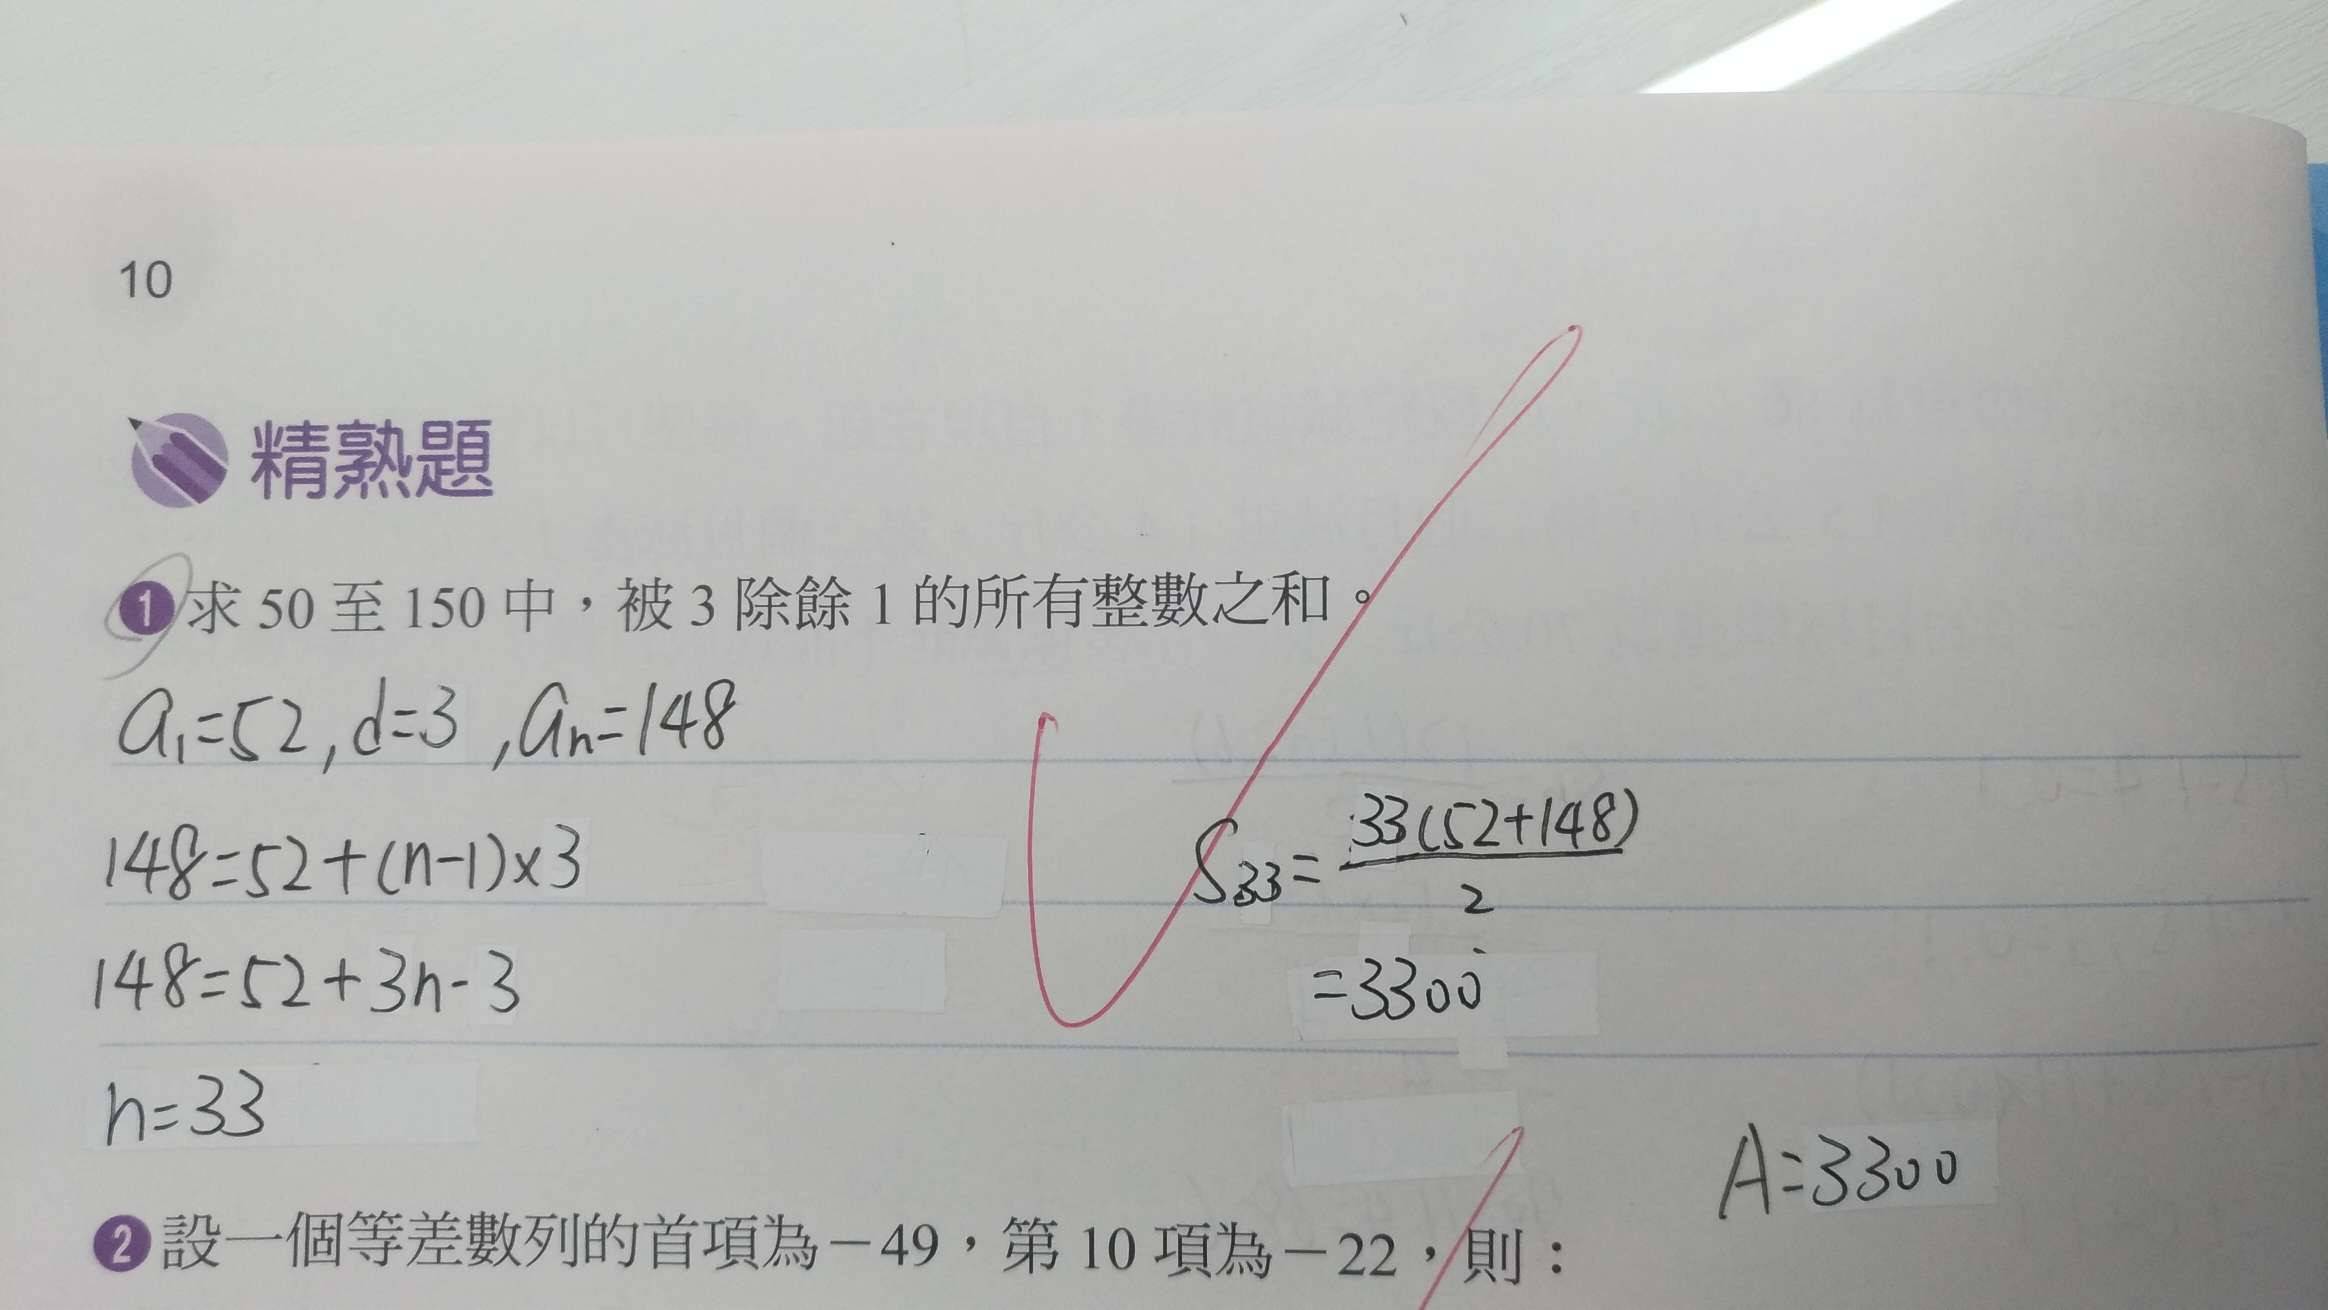 10
精熟題
1 求 50 至 150 中，被 3 除餘 1 的所有整數之和。
a₁=52, d=3, aₙ=148
148=52+(n-1)×3
148=52+3n-3
n=33
S₃₃=33(52+148)/2
=3300
A=3300
2 設一個等差數列的首項為－49，第 10 項為－22，則：